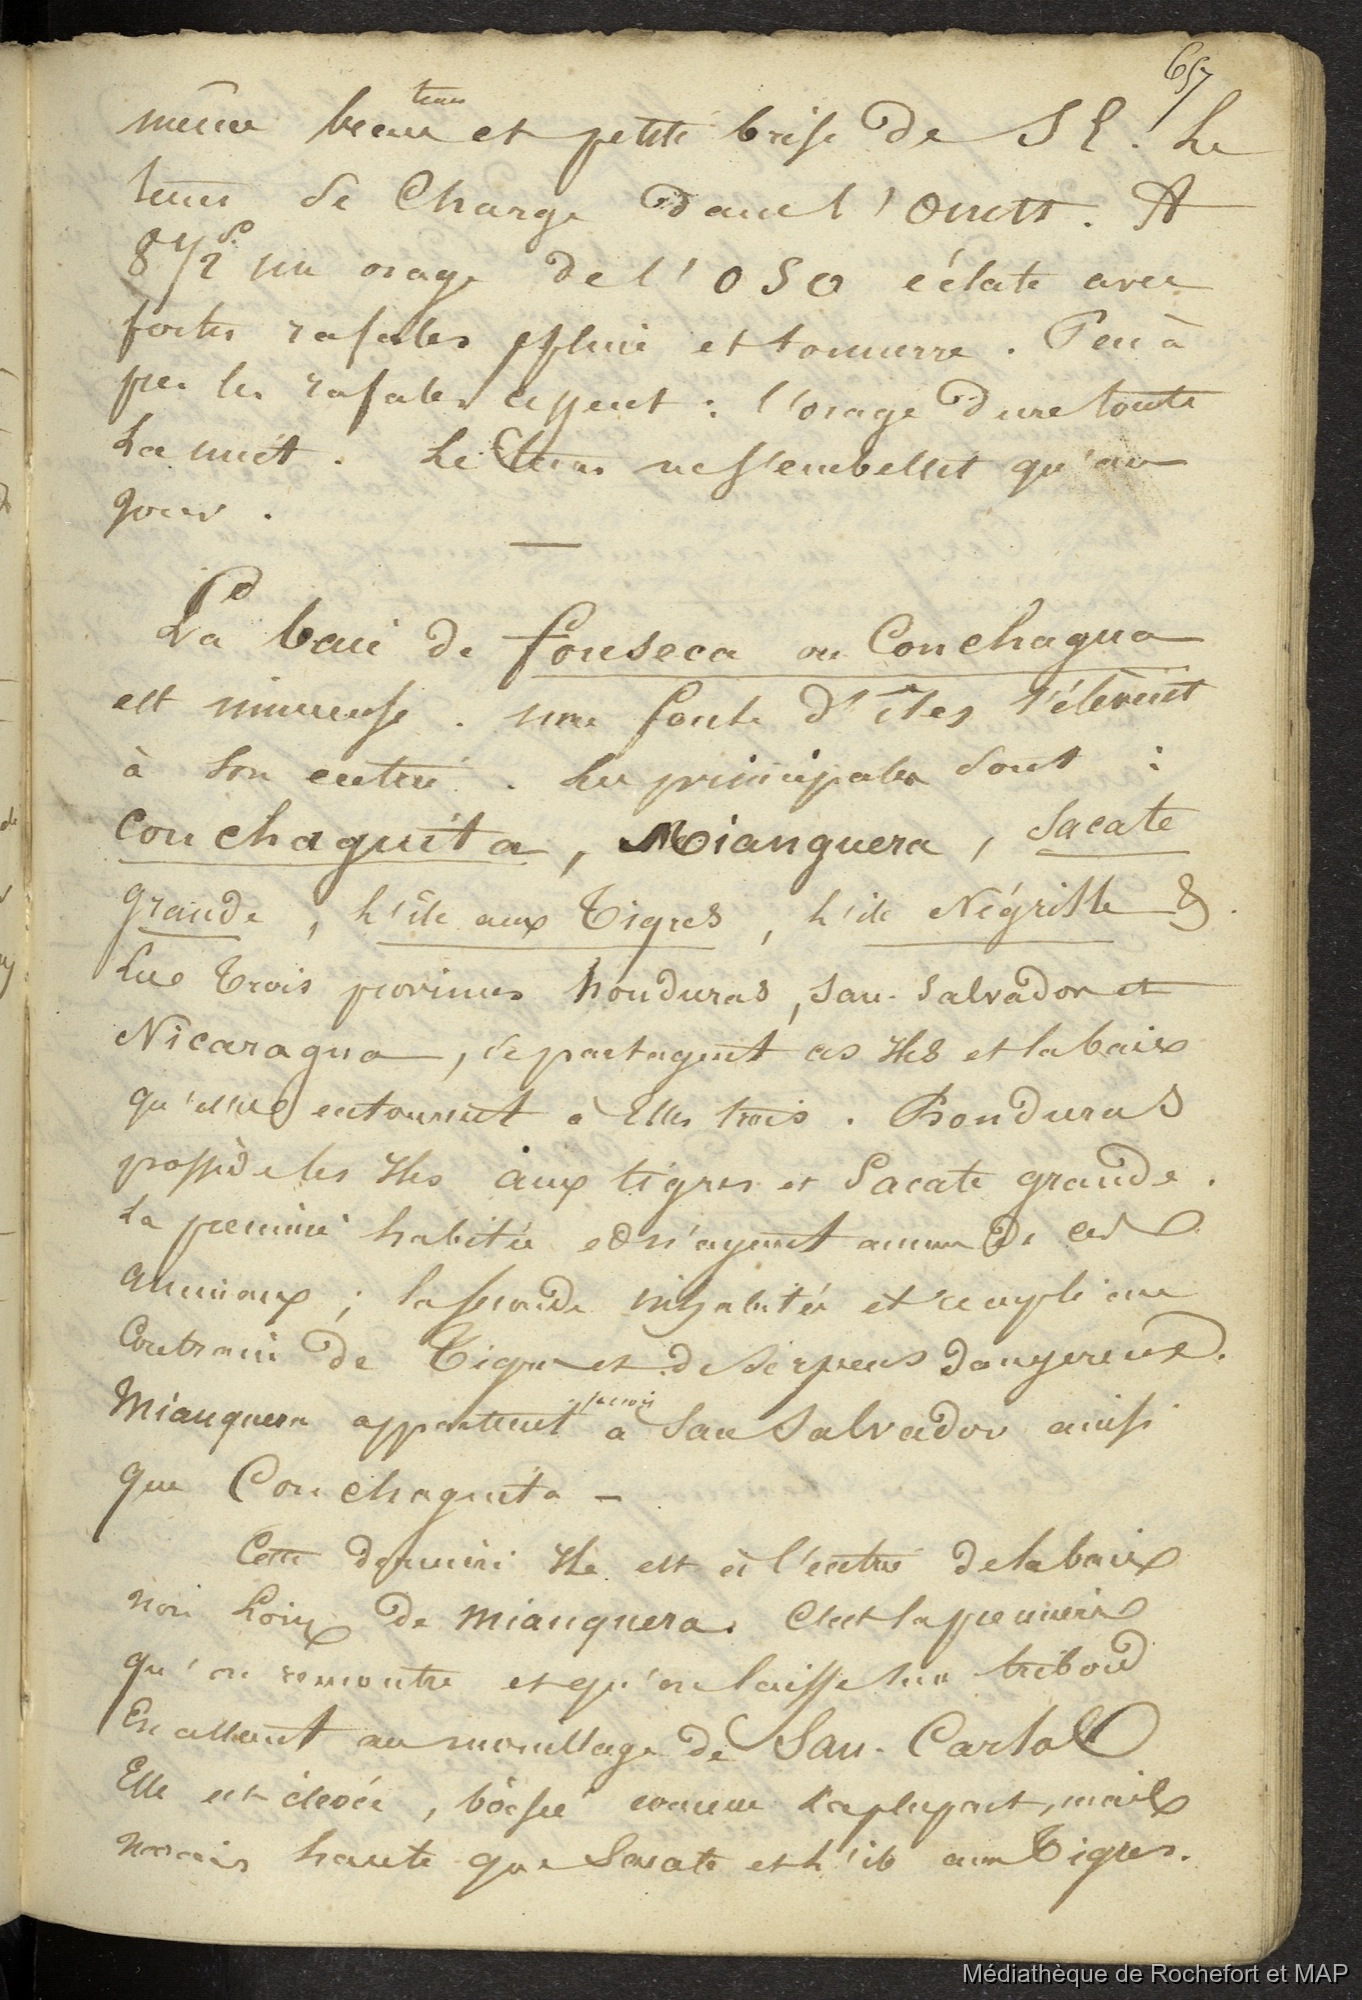 657
même beau tems et petite brise de S E. Le
tems se charge dans l'Ouest. A
8 1/2 un orage de l'O S O éclate avec
fortes rafales pluie et tonnerre. Peu à
peu les rafales cessent : l'orage dure toute
La nuit. Le tems ne s'embellit qu'au
jour.
La baie de fonseca ou Conchagua
est immense. une foule d'îles s'élèvent
à son entrée. Les principales sont :
Conchaguita, Mianguera, Sacate
grande, L'île aux Tigres, L'ile Négritte &.
Les trois provinces honduras, San-Salvador et
Nicaragua, se partagent ces Iles et la baie
qu'elles entourent à Elles trois. Honduras
possède les Iles aux tigres et Sacate grande.
La première habitée et n'ayant aucun de ces
animaux ; la seconde inhabitée et remplie au
Contraire de Tigres et de Serpens dangereux.
Mianguera appartient à San Salvador ainsi
que Conchaguita -
Cette dernière Ile est à l'entrée de la baie
non Loin de Mianguera. C'est la première
qu'on rencontre et qu'on laisse sur tribord
En allant au mouillage de San-Carlos
Elle est élevée, boisée comme La plupart, mais
moins haute que Sacate et L'ile aux Tigres.
Médiathèque de Rochefort et MAP